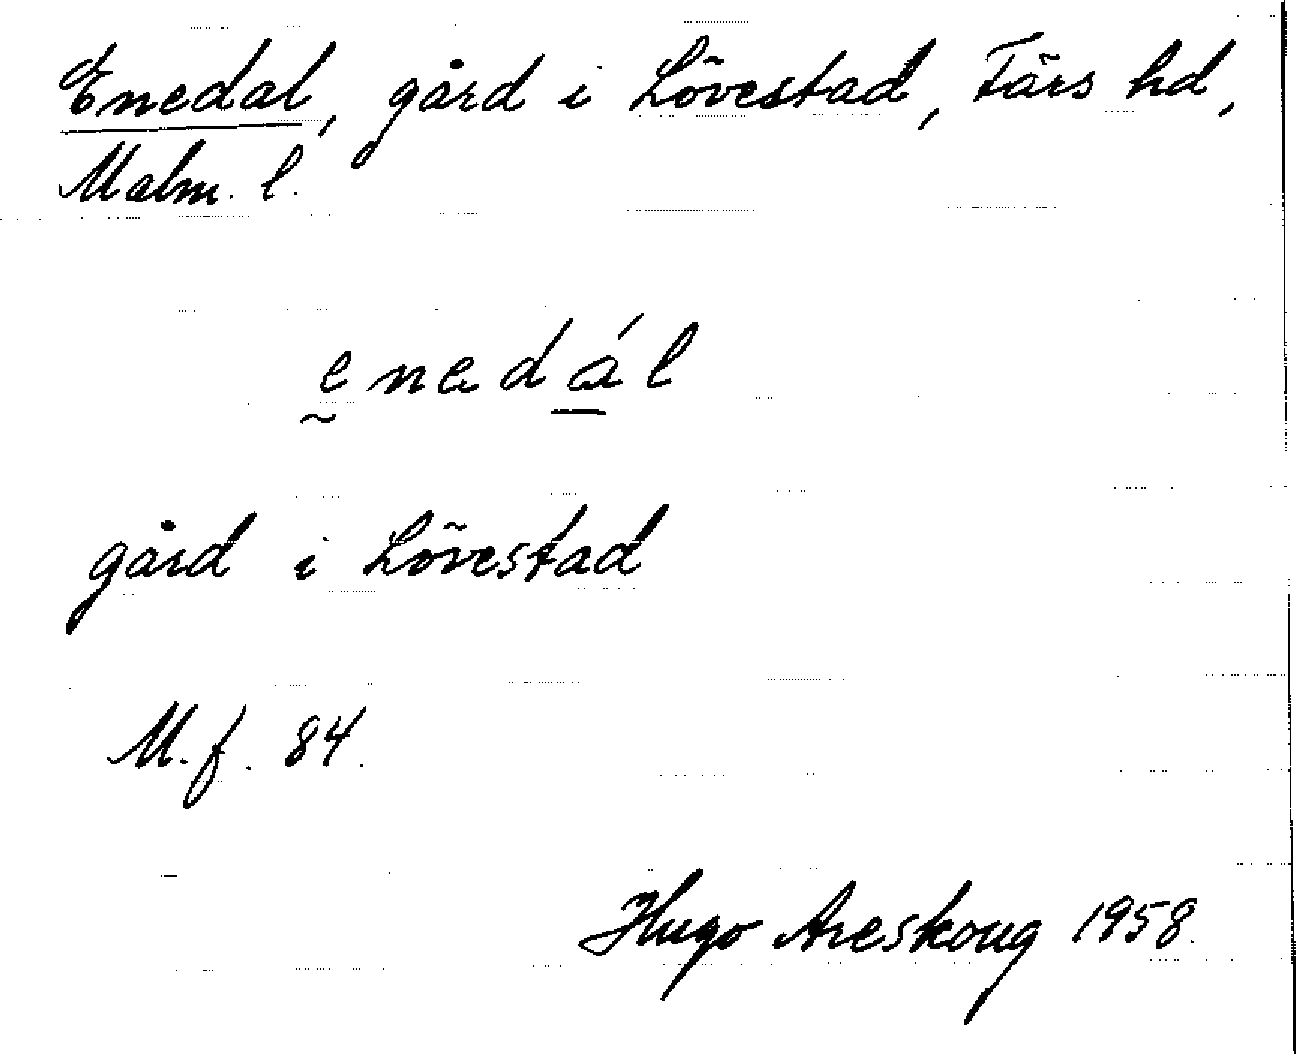 Enedal, gård i Lövestad, Färs hd,
Malm. l.
enedál
gård i Lövestad
M.f. 84.
Hugo Areskoug 1958.